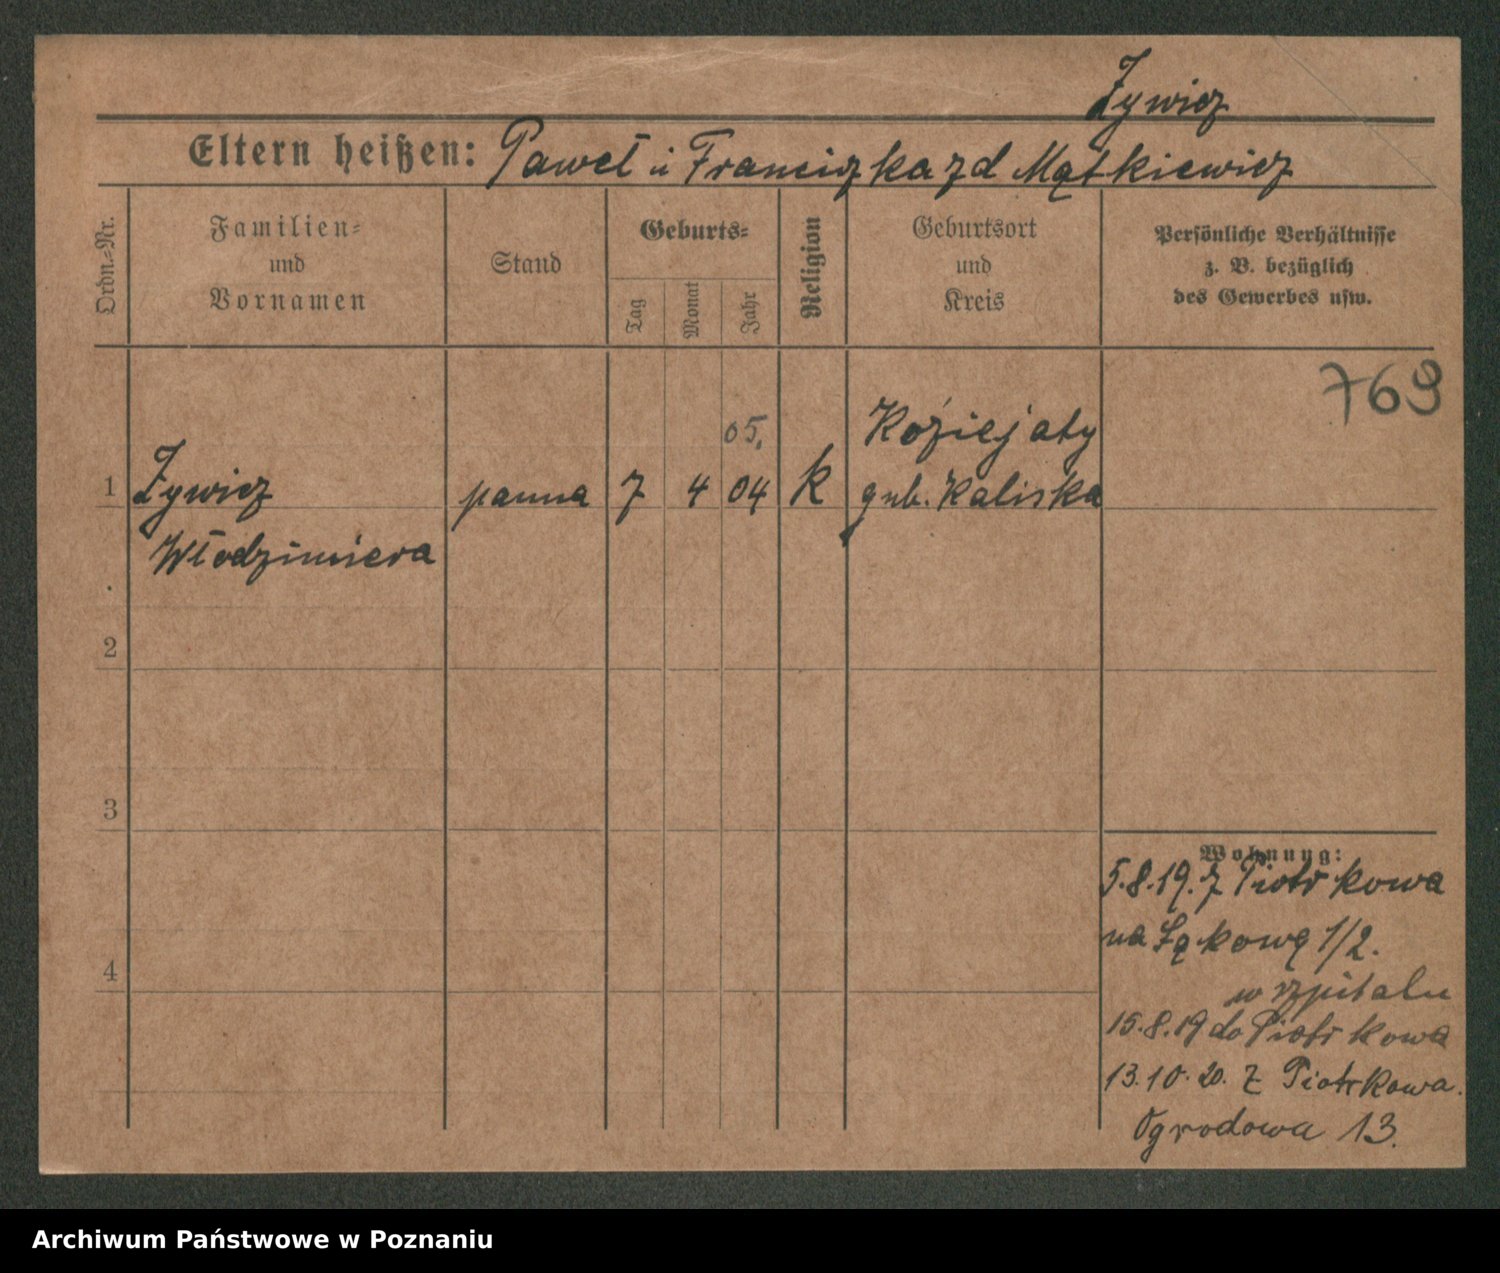 Żywicz
Eltern heißen: Paweł i Franciszka zd Mątkiewicz
Ordn.-Nr.
Familien-
und
Vornamen
Stand
Geburts-
Tag
Monat
Jahr
Religion
Geburtsort
und
Kreis
Persönliche Verhältnisse
z. B. bezüglich
des Gewerbes usw.
769
05.
Koziejaty
1 Żywicz panna 7 4 04 k gub. Kaliska
Włodzimiera
2
3
4
Wohnung:
5.8.19. z Piotrkowa
na Łąkową 1/2.
w szpitalu
15.8.19 do Piotrkowa
13.10.20. z Piotrkowa.
Ogrodowa 13.
Archiwum Państwowe w Poznaniu